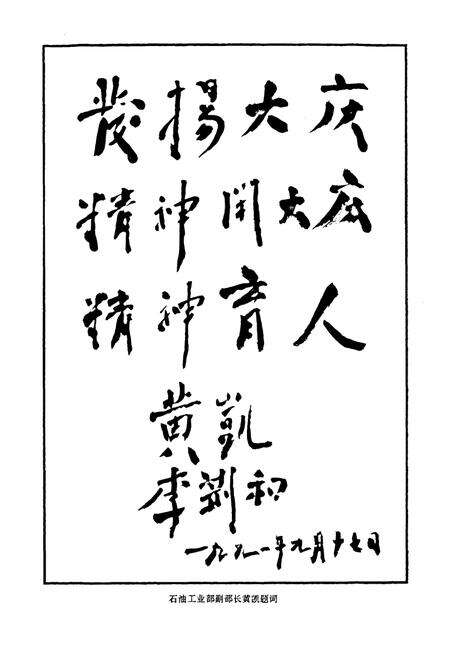 發揚大庆
精神用大庆
精神育人
黄凱
李荆和
一九九一年九月十七日
石油工业部副部长黄凯题词